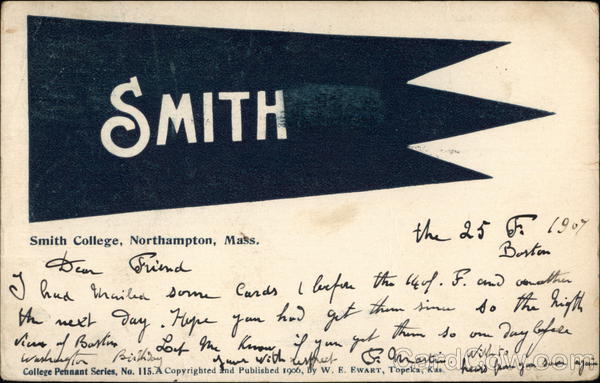 SMITH
Smith College, Northampton, Mass.
the 25 F. 1907
Boston
Dear Friend
I had mailed some Cards 1 before the 4 of. F. and another
the next day. Hope you had get them since so the
view of Boston Let Me Know if you get them so one day before
Washington Birthday yours with respect F.
hears from you soon again
College Pennant Series, No. 115. A Copyrighted and Published 1906, by W. E. EWART, Topeka, Kas.
CardCow.com